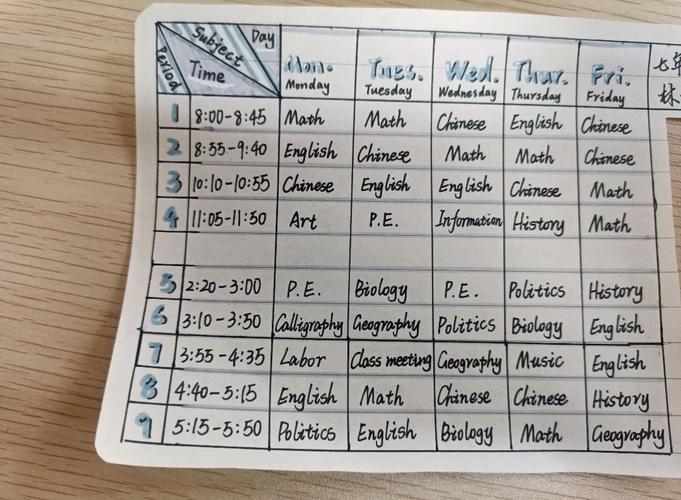 Subject Day
Period Time
Mon. Tues. Wed. Thur. Fri. 七年
Monday Tuesday Wednesday Thursday Friday 林
1 8:00-8:45 Math Math Chinese English Chinese
2 8:55-9:40 English Chinese Math Math Chinese
3 10:10-10:55 Chinese English English Chinese Math
4 11:05-11:50 Art P.E. Information History Math
5 2:20-3:00 P.E. Biology P.E. Politics History
6 3:10-3:50 Calligraphy Geography Politics Biology English
7 3:55-4:35 Labor Class meeting Geography Music English
8 4:40-5:15 English Math Chinese Chinese History
9 5:15-5:50 Politics English Biology Math Geography